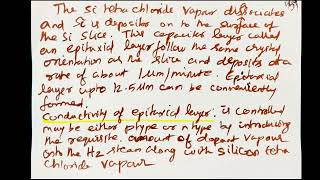 The Si tetra chloride vapour dissociates
and Si is depositor on to the surface of
the Si slice. This capacitor layer called
an epitaxial layer follow the same crystal
orientation as the slice and deposits at a
rate of about 1μm/minute. Epitaxial
layer upto 12.5μm can be conveniently
formed.
Conductivity of epitaxial layer: is controlled
may be either ptype or n type by introducing
the requisite amount of dopant vapour
onto the H2 steam along with silicon tetra
chloride vapour